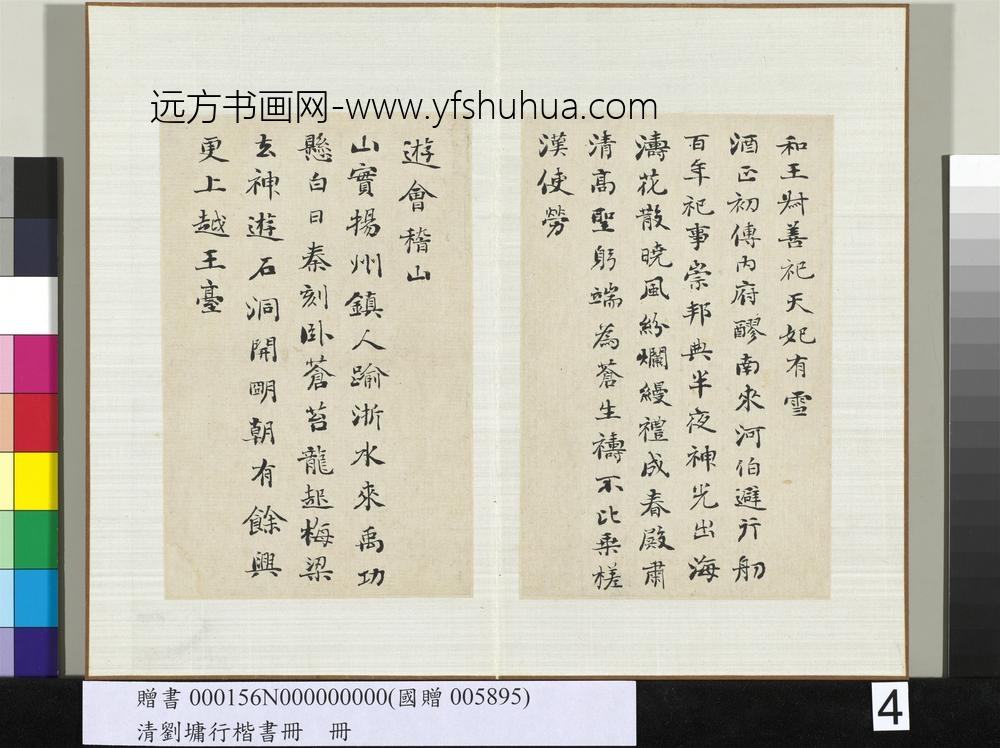 远方书画网-www.yfshuhua.com
和王尌善祀天妃有雪
酒正初傳內府醪南來河伯避行舠
百年祀事崇邦典半夜神光出海
濤花散曉風紛爛縵禮成春殿肅
清高聖躬端為蒼生禱不比乘槎
漢使勞
遊會稽山
山實揚州鎮人踰浙水來禹功
懸白日秦刻臥蒼苔龍起梅梁
去神遊石洞開明朝有餘興
更上越王臺
贈書 000156N000000000(國贈 005895)
清劉墉行楷書冊 冊
4